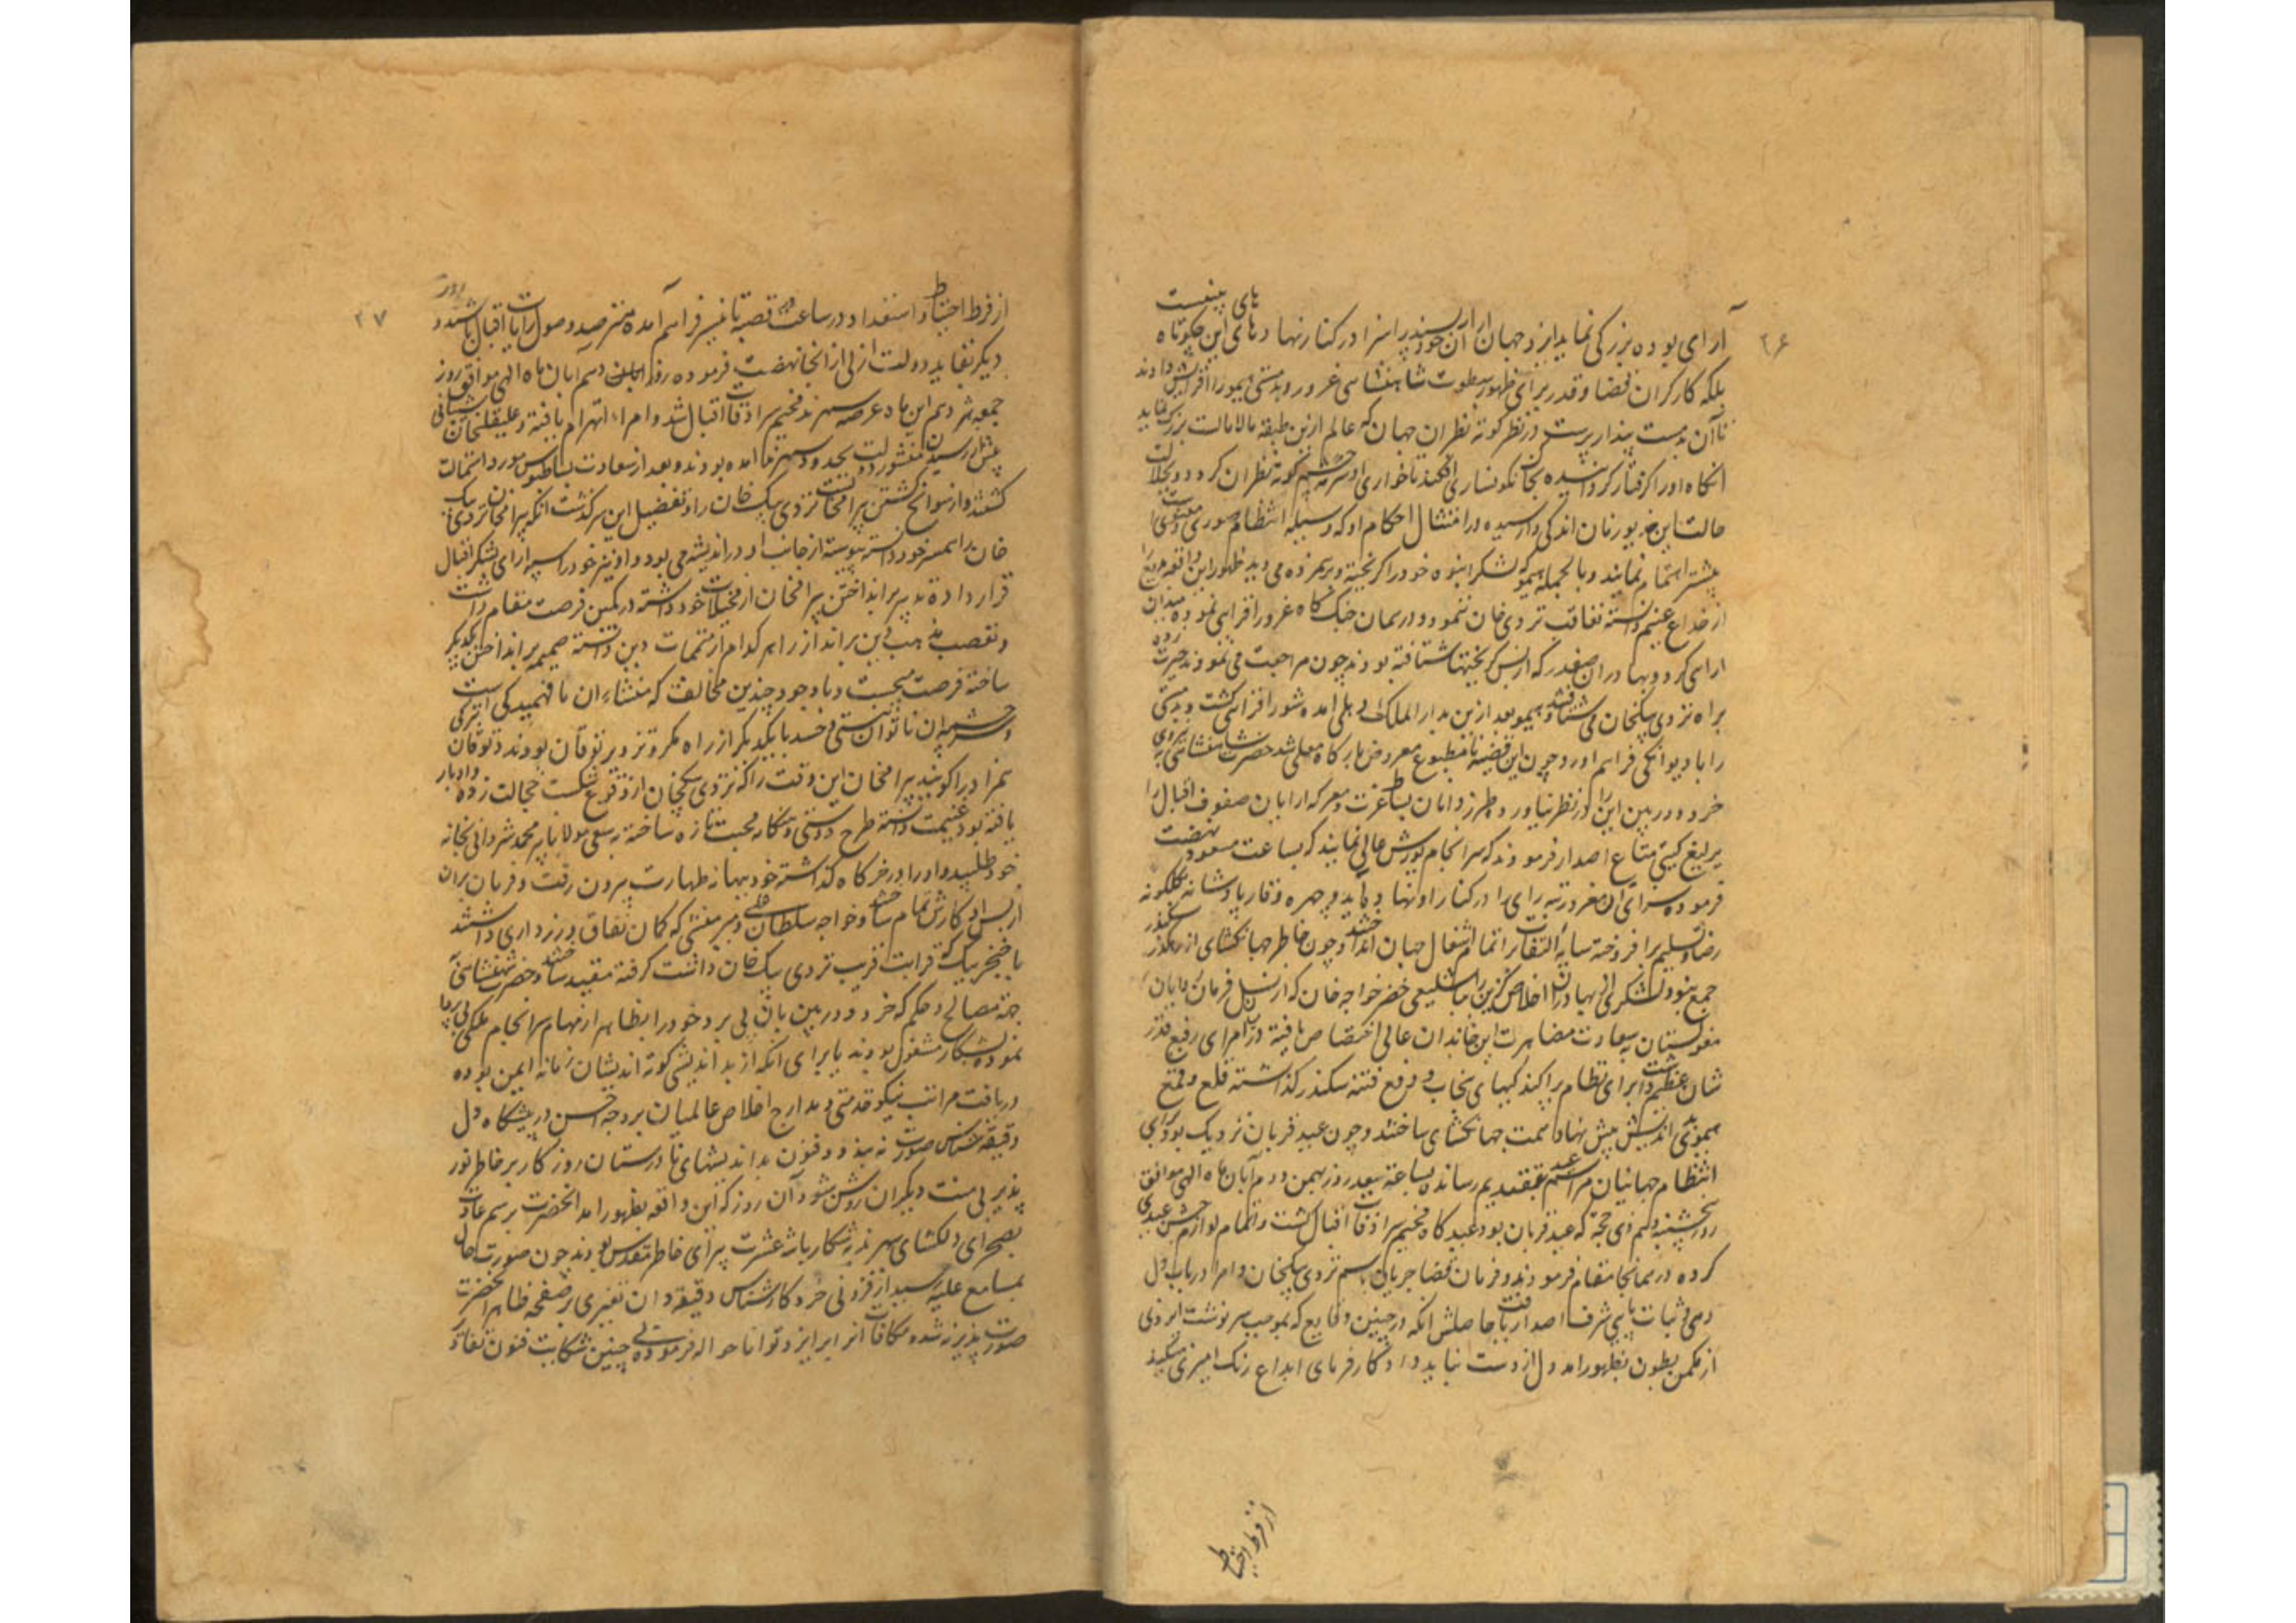 ۲۶
آرای بوده بزرگی نماید ایزد جهان آرا آن خودپسند را سزا در کنار نهاد و بای این چکوتاه
بلکه کارکران قضا و قدر برای ظهور سطوت شاهنشاهی غرور و بدمستی هیمو را افزایش دادند
تا آن بدمست پندار پرست در نظر کوته نظران جهان که عالم ازین طبقه مالامال است بزرک نماید
انکاه او را کرفتار کردانیده بخاک نکونساری افکند تا خواری او سرمه چشم کوته نظران کردد و بجلالت
حالت این خدیو زمان اندکی وارسیده در امتثال احکام او که وسیله انتظام صوری و معنوی است
بیشتر اهتمام نمایند و بالجمله هیمو که لشکر انبوه خود را کریخته و برهم زده می دید ظهور این واقعه را
از خداع غنیم دانسته تعاقب تردی خان ننمود و در همان جنک کاه غرور افزایی نموده میدان
ارایی کرد و بهادران صفدر که از پس کریختها شتافته بودند چون مراجعت می نمودند حیرت زده
براه تردی بیکخان می شتافتند و هیمو بعد ازین بدار الملک دهلی امده شور افزای کشت و بدمستی
را با دیوانکی فراهم اورد و چون این قضیه نامطبوع معروض بارکاه معلی شد حضرت شاهنشاهی بروی
خرد دوربین این را در نظر نیاورده و طرز دانان بساط عزت و معرکه ارایان صفوف اقبال را
یرلیغ کیتی متاع اصدار فرمودند که سرانجام یورش عالی نمایند که بساعت مسعود نهضت
فرموده سزای آن مغرور تیره رای را در کنار او نهاده آید و چهره وقار پادشاهانه کلکونه
رضا و تسلیم برافروخته سایه التفات را بانتظام اشغال جهان انداختند و چون خاطر جهانکشای از رهکذر سکندر
جمع نبود لشکری از بهادران اخلاص کزین را باشلیغی خضر خواجه خان که از نسل فرمان روایان
مغولستان بسعادت مصاهرت این خاندان عالی اختصاص یافته در امرای رفیع قدر
شان عظیم داشت برای انتظام پراکندکیهای پنجاب و دفع فتنه سکندر کذاشته قلع و قمع
هیموی بداندیش پیش نهاد همت جهانکشای ساختند و چون عید قربان نزدیک بود برای
انتظام جهانیان مراسم عید بتقدیم رسانده بساعت سعید روز بهمن دوم آبان ماه الهی موافق
روز پنجشنبه دهم ذی حجه که عید قربان بود عیدکاه مخیم سرادقات اقبال کشت و اتمام لوازم جشن عیدی
کرده در همانجا مقام فرمودند و فرمان قضا جریان باسم تردی بیکخان و امرا در باب دل
دهی و ثبات پای شرف اصدار یافت حاصلش انکه در چنین وقایع که بموجب سرنوشت ایزدی
از مکمن بطون بظهور امد دل از دست نباید داد که کارفرمای ابداع رنک امیزی میکند
از فرط احتیاط
۲۷
از فرط احتیاط و استعداد در ساعت در قصبه تانیسر فراهم آمده مترصد وصول رایات اقبال باشند و روز
دیکر بتقاید دولت ازلی از انجا نهضت فرموده روز ابان دهم آبان ماه الهی موافق روز
جمعه هژدهم این ماه عرصه سهرند مخیم سرادقات اقبال شد و امرا انهزام یافته و علیقلی خان شیبانی
پیش از رسیدن منشور دولت بحدود سهرند امده بودند و بعد از سعادت بساطبوس مورد استمالت
کشتند و از سوانح کشتن بیرامخان تردی بیک خان را و تفصیل این سرکذشت انکه بیرامخان تردی بیک
خان را همسر خود دانسته پیوسته از جانب او در اندیشه می بود و او نیز خود را سپه ارای لشکر اقبال
قرار داده تدبیر برانداختن بیرامخان از مخیلات خود داشته در کمین فرصت مقام داشت
و تعصب مذهب دین برانداز را هر کدام از متممات دین دانسته ضمیمه برانداختن یکدیکر
ساخته فرصت میجست و با وجود چندین مخالفت که منشاء ان نافهمیدکی است
و سرچشمه ان ناتوان بینی و حسد با یکدیکر از راه مکر و تزویر توقان بودند و توقان بترکی
همزاد را کویند بیرامخان این وقت را که تردی بیکخان از وقوع شکست خجالت زده و ادبار
یافته بود غنیمت دانسته طرح دوستی و هنکامه محبت تازه ساخته به سعی مولانا پیر محمد شروانی بخانه
خود طلبید و او را در خرکاه کذاشته خود ببهانه طهارت بیرون رفت و فرمان بران
او بس او کارش تمام ساختند و خواجه سلطان علی و میر منشی که کمان نفاق و رازداری داشتند
با خنجر بیک که قرابت قریب تردی بیک خان داشت کرفته مقید ساختند و حضرت شهنشاهی که
بجهة مصالح و حکم که خرد دوربین بان پی برد خود را بظاهر از مهام سرانجام ملکی بی پروا
نموده بشکار مشغول بودند یا برای انکه از بداندیشی کوته اندیشان زمانه ایمن بوده
دریافت مراتب نیکو خدمتی و مدارج اخلاص عالمیان بر وجه احسن در پیشکاه دل
دقیقه شناس صورت بندد و فنون بداندیشهای نادرستان روزکار بر خاطر نور
پذیر بی منت دیکران روشن شود آن روز که این واقعه بظهور امد انحضرت برسم عادت
بصحرای دلکشای سهرند به شکار باشه عشرت پیرای خاطر مقدس بودند چون صورت حال
بمسامع علیه رسید از فزونی خرد کارشناس دقیقه دان تغییری بر صفحه ظاهر انحضرت
صورت پذیر نشده مکافات انرا بر ایزد توانا حواله فرمودند بی چنین شکایت فنون نفاق